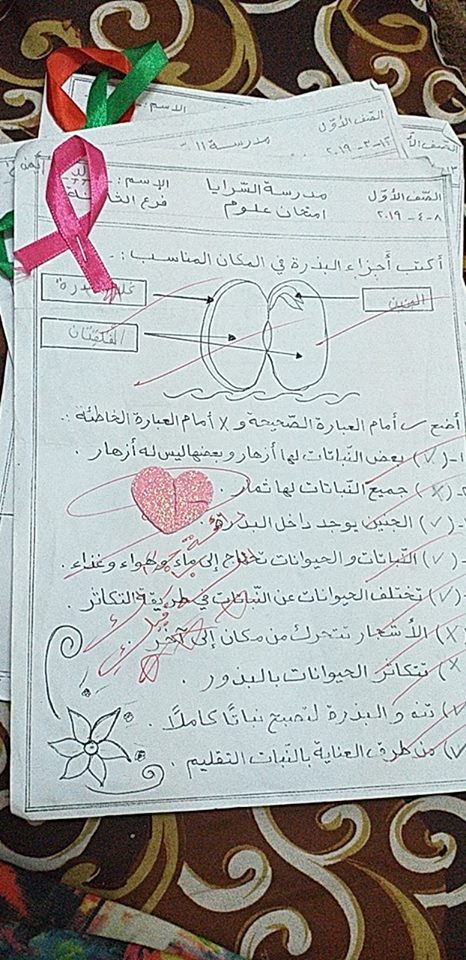 الاسم :
الصّف الأوّل
مدرسة ال
الصّف الأوّل مدرسة الشرايا الاسم :
٨-٤-٢٠١٩ امتحان علوم فرع
أكتب أجزاء البذرة في المكان المناسب : -
الجنين
الفلقتان
أضع ✓ أمام العبارة الصّحيحة و X أمام العبارة الخاطئة :
١- (✓) بعض النّباتات لها أزهار وبعضها ليس له أزهار .
(X) جميع النّباتات لها ثمار .
(✓) الجنين يوجد داخل البذرة .
(✓) النّباتات و الحيوانات تحتاج إلى ماء و هواء وغذاء .
(✓) تختلف الحيوانات عن النّباتات في طريقة التكاثر .
X) الأشجار تتحرك من مكان إلى آخر
X) تتكاثر الحيوانات بالبذور .
✓) تنمو البذرة لتصبح نباتًا كاملًا .
✓) من طرق العناية بالنّبات التقليم .